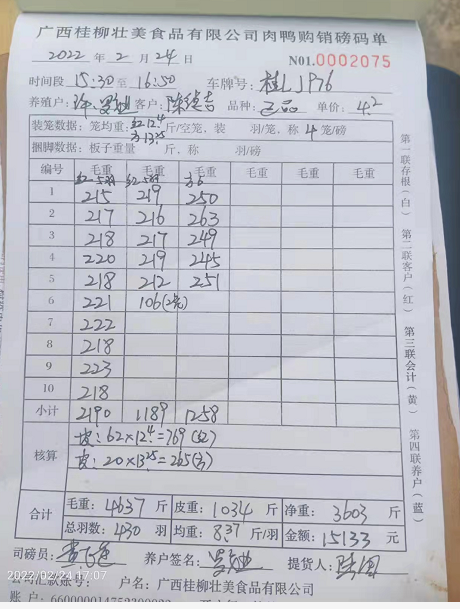 广西桂柳壮美食品有限公司肉鸭购销磅码单
2022 年 2 月 24 日 N01.0002075
时间段 15:30 至 16:50 车牌号: 桂LJP76
养殖户: 客户: 陈德吉 品种: 正品 单价: 4.2
装笼数据: 笼均重: 红12.4 斤/空笼, 装 羽/笼, 称 4 笼/磅
方13.25
捆脚数据: 板子重量 斤, 称 羽/磅
编号 毛重 毛重 毛重 毛重 毛重 毛重
1 215 219 250
2 217 216 263
3 218 217 249
4 220 219 245
5 218 212 251
6 221 106(2笼)
7 222
8 218
9 223
10 218
小计 2190 1189 1258
核算 皮: 62×12.4=769(红)
皮: 20×13.25=265(方)
合计 毛重: 4637 斤 皮重: 1034 斤 净重: 3603 斤
总羽数: 430 羽 均重: 8.37 斤/羽 金额: 15133 元
司磅员: 养户签名: 提货人:
2022/02/24 17:07
公司汇款账号: 户名: 广西桂柳壮美食品有限公司
账 户:
第一联存根(白) 第二联客户(红) 第三联会计(黄) 第四联养户(蓝)